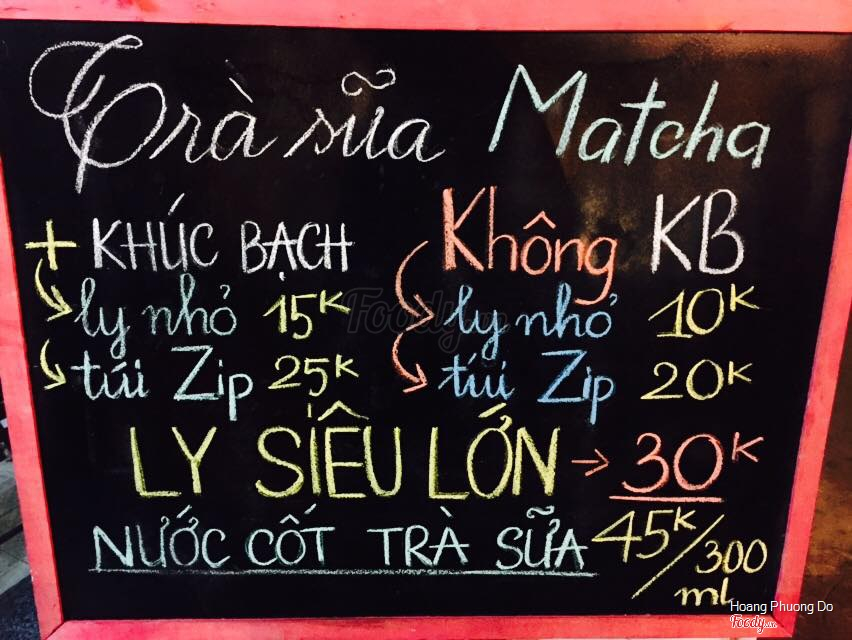 Trà sữa Matcha
+ KHÚC BẠCH Không KB
ly nhỏ 15K ly nhỏ 10K
túi Zip 25K túi Zip 20K
LY SIÊU LỚN → 30K
NƯỚC CỐT TRÀ SỮA 45K/300 ml
Foody.vn
Hoang Phuong Do
Foody.vn